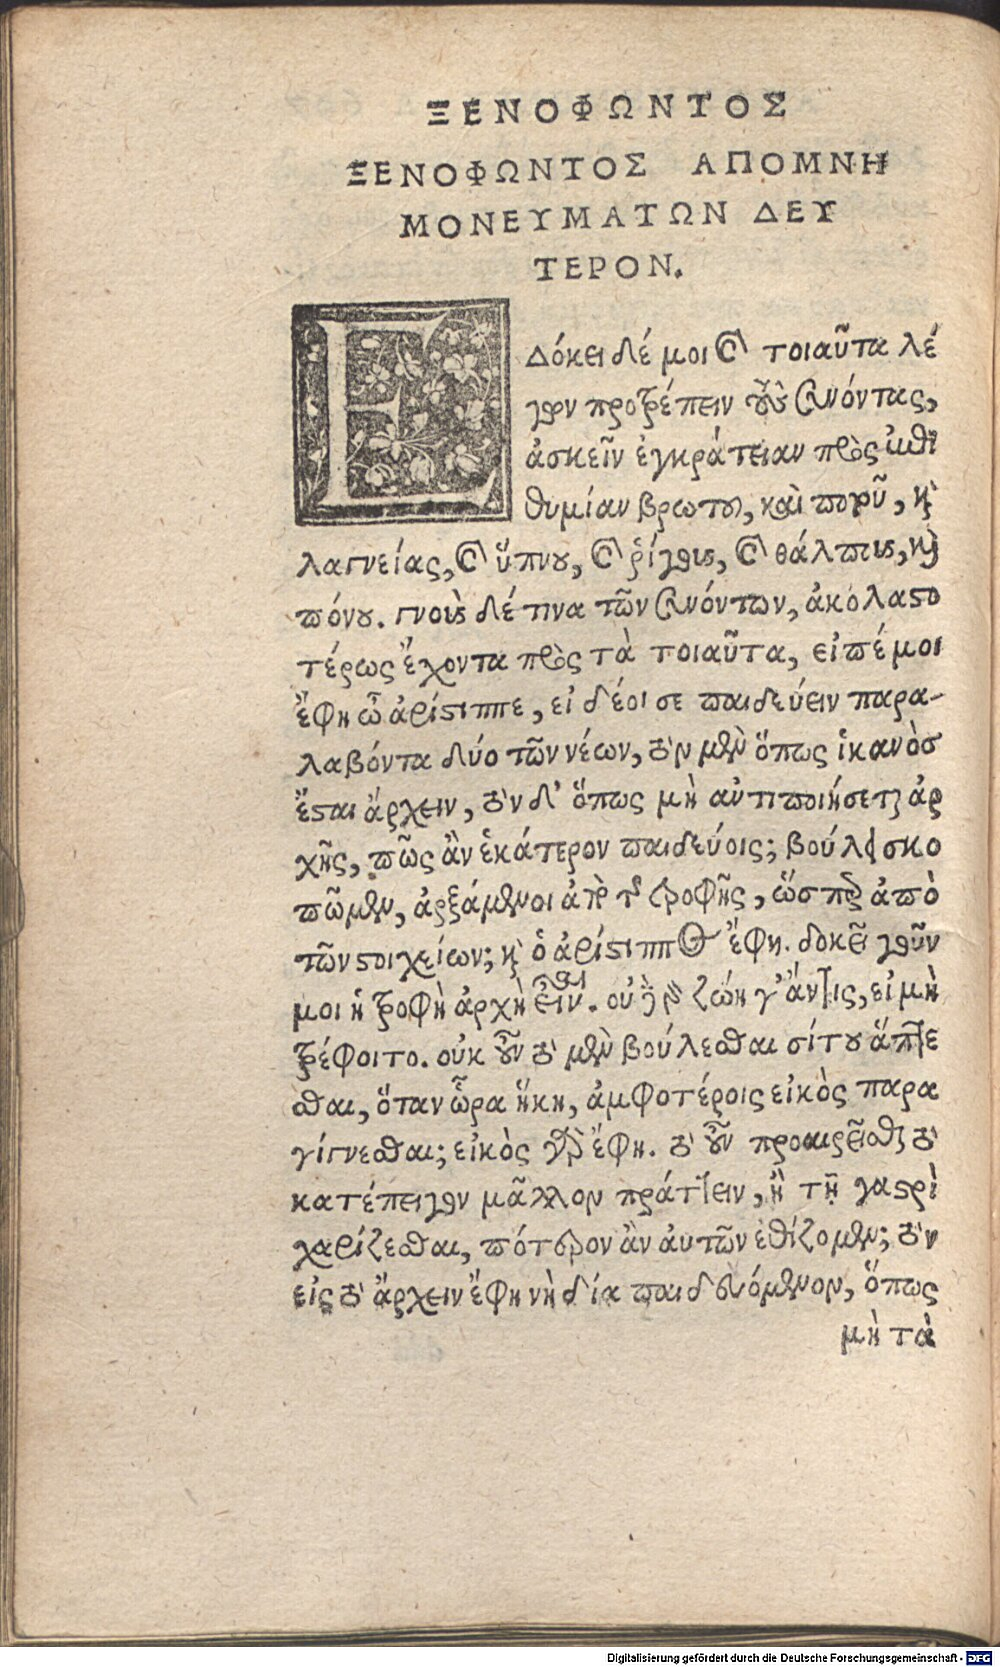 ΞΕΝΟΦΩΝΤΟΣ
ΞΕΝΟΦΩΝΤΟΣ ΑΠΟΜΝΗ
ΜΟΝΕΥΜΑΤΩΝ ΔΕΥ
ΤΕΡΟΝ.
Εδόκει δέ μοι καὶ τοιαῦτα λέ
γων προτρέπειν τοὺς συνόντας,
ἀσκεῖν ἐγκράτειαν πρὸς ἐπι
θυμίαν βρωτοῦ, καὶ ποτοῦ, καὶ
λαγνείας, καὶ ὕπνου, καὶ ῥίγους, καὶ θάλπους, καὶ
πόνου. γνοὺς δέ τινα τῶν συνόντων, ἀκολαστο
τέρως ἔχοντα πρὸς τὰ τοιαῦτα, εἰπέ μοι
ἔφη ὦ ἀρίστιππε, εἰ δέοι σε παιδεύειν παρα-
λαβόντα δύο τῶν νέων, τὸν μὲν ὅπως ἱκανὸσ
ἔσται ἄρχειν, τὸν δ' ὅπως μὴ ἀντιποιήσεται ἀρ
χῆς, πῶς ἂν ἑκάτερον παιδεύοις; βούλει σκο
πῶμεν, ἀρξάμενοι ἀπὸ τῆς τροφῆς, ὥσπερ ἀπὸ
τῶν στοιχείων; καὶ ὁ ἀρίστιππος ἔφη. δοκεῖ γοῦν
μοι ἡ τροφὴ ἀρχὴ εἶναι. οὐδὲ γὰρ ζώη γ' ἄν τις, εἰ μὴ
τρέφοιτο. οὐκ οὖν τὸ μὲν βούλεσθαι σίτου ἅπτε
σθαι, ὅταν ὥρα ἥκη, ἀμφοτέροις εἰκὸς παρα
γίγνεσθαι; εἰκὸς γὰρ ἔφη. τὸ οὖν προαιρεῖσθαι τὸ
κατέπειγον μᾶλλον πράττειν, ἢ τῇ γαστρὶ
χαρίζεσθαι, πότερον ἂν αὐτῶν ἐθίζομεν; τὸν
εἰς τὸ ἄρχειν ἔφη νὴ δία παιδευόμενον, ὅπως
μὴ τὰ
Digitalisierung gefördert durch die Deutsche Forschungsgemeinschaft - DFG